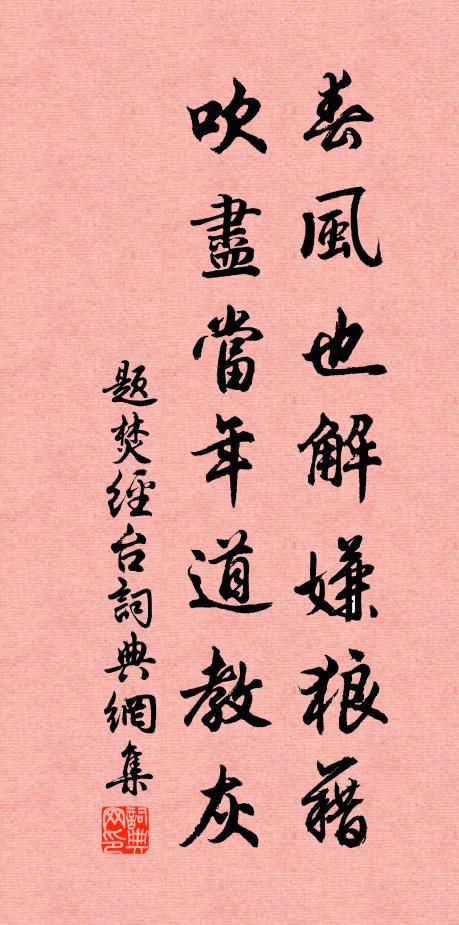 春風也解嫌狼藉
吹盡當年道教灰
題焚經台詞典網集
詞典網印